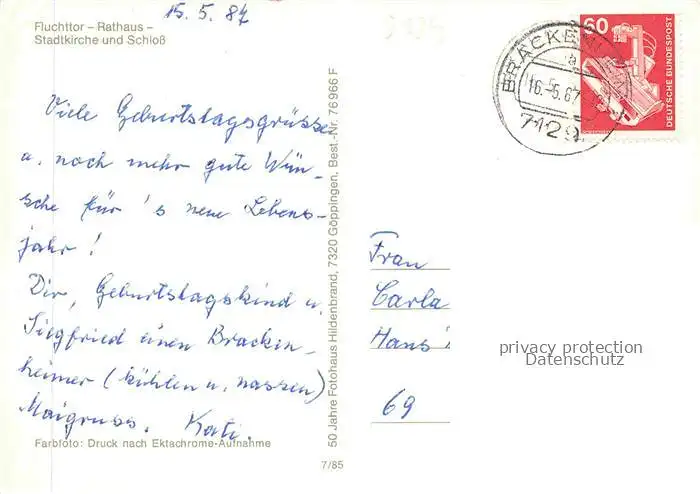 15.5.87
Fluchttor – Rathaus –
Stadtkirche und Schloß
Viele Geburtstagsgrüsse
u. noch mehr gute Wün-
sche für's neue Lebens-
jahr!
Dir, Geburtstagskind u.
Siegfried einen Bracken-
heimer (kühlen u. nassen)
Maigruss. Kati.
Farbfoto: Druck nach Ektachrome-Aufnahme
50 Jahre Fotohaus Hildenbrand, 7320 Göppingen, Best.-Nr. 76 966 F
7/85
60
DEUTSCHE BUNDESPOST
a
16.-5.87
7129
Frau
Carla
Hans
69
privacy protection
Datenschutz